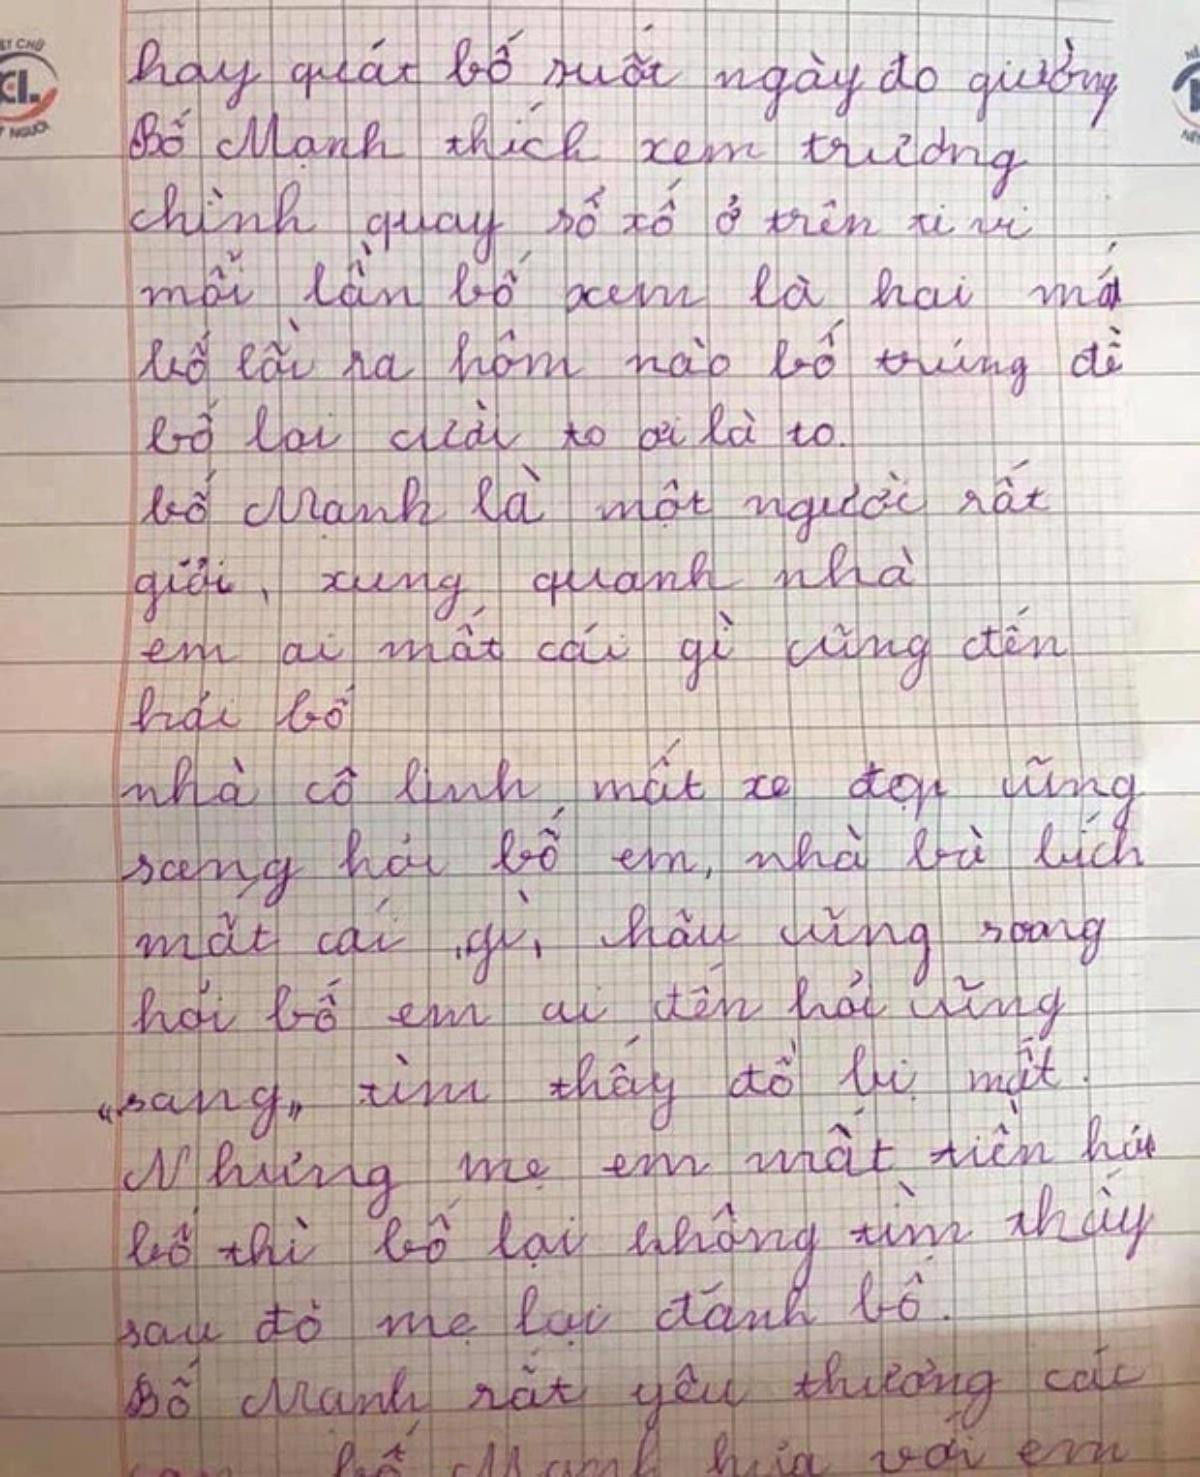 hay quát bố suốt ngày đo giường
Bố Mạnh thích xem trương
chình quay số xố ở trên ti vi
mỗi lần bố xem là hai má
bố lồi ra hôm nào bố trúng đề
bố lại cười to ơi là to.
bố Mạnh là một người rất
giỏi, xung quanh nhà
em ai mất cái gì cũng đến
hỏi bố
nhà cô linh mất xe đạp cũng
sang hỏi bố em, nhà bà bích
mất cái gì, hâu cũng soang
hỏi bố em ai đến hỏi cũng
"sang" tìm thấy đồ bị mất.
Nhưng mẹ em mất tiền hỏi
bố thì bố lại không tìm thấy
sau đó mẹ lại đánh bố.
Bố Mạnh rất yêu thương các
bố Mạnh hứa với em